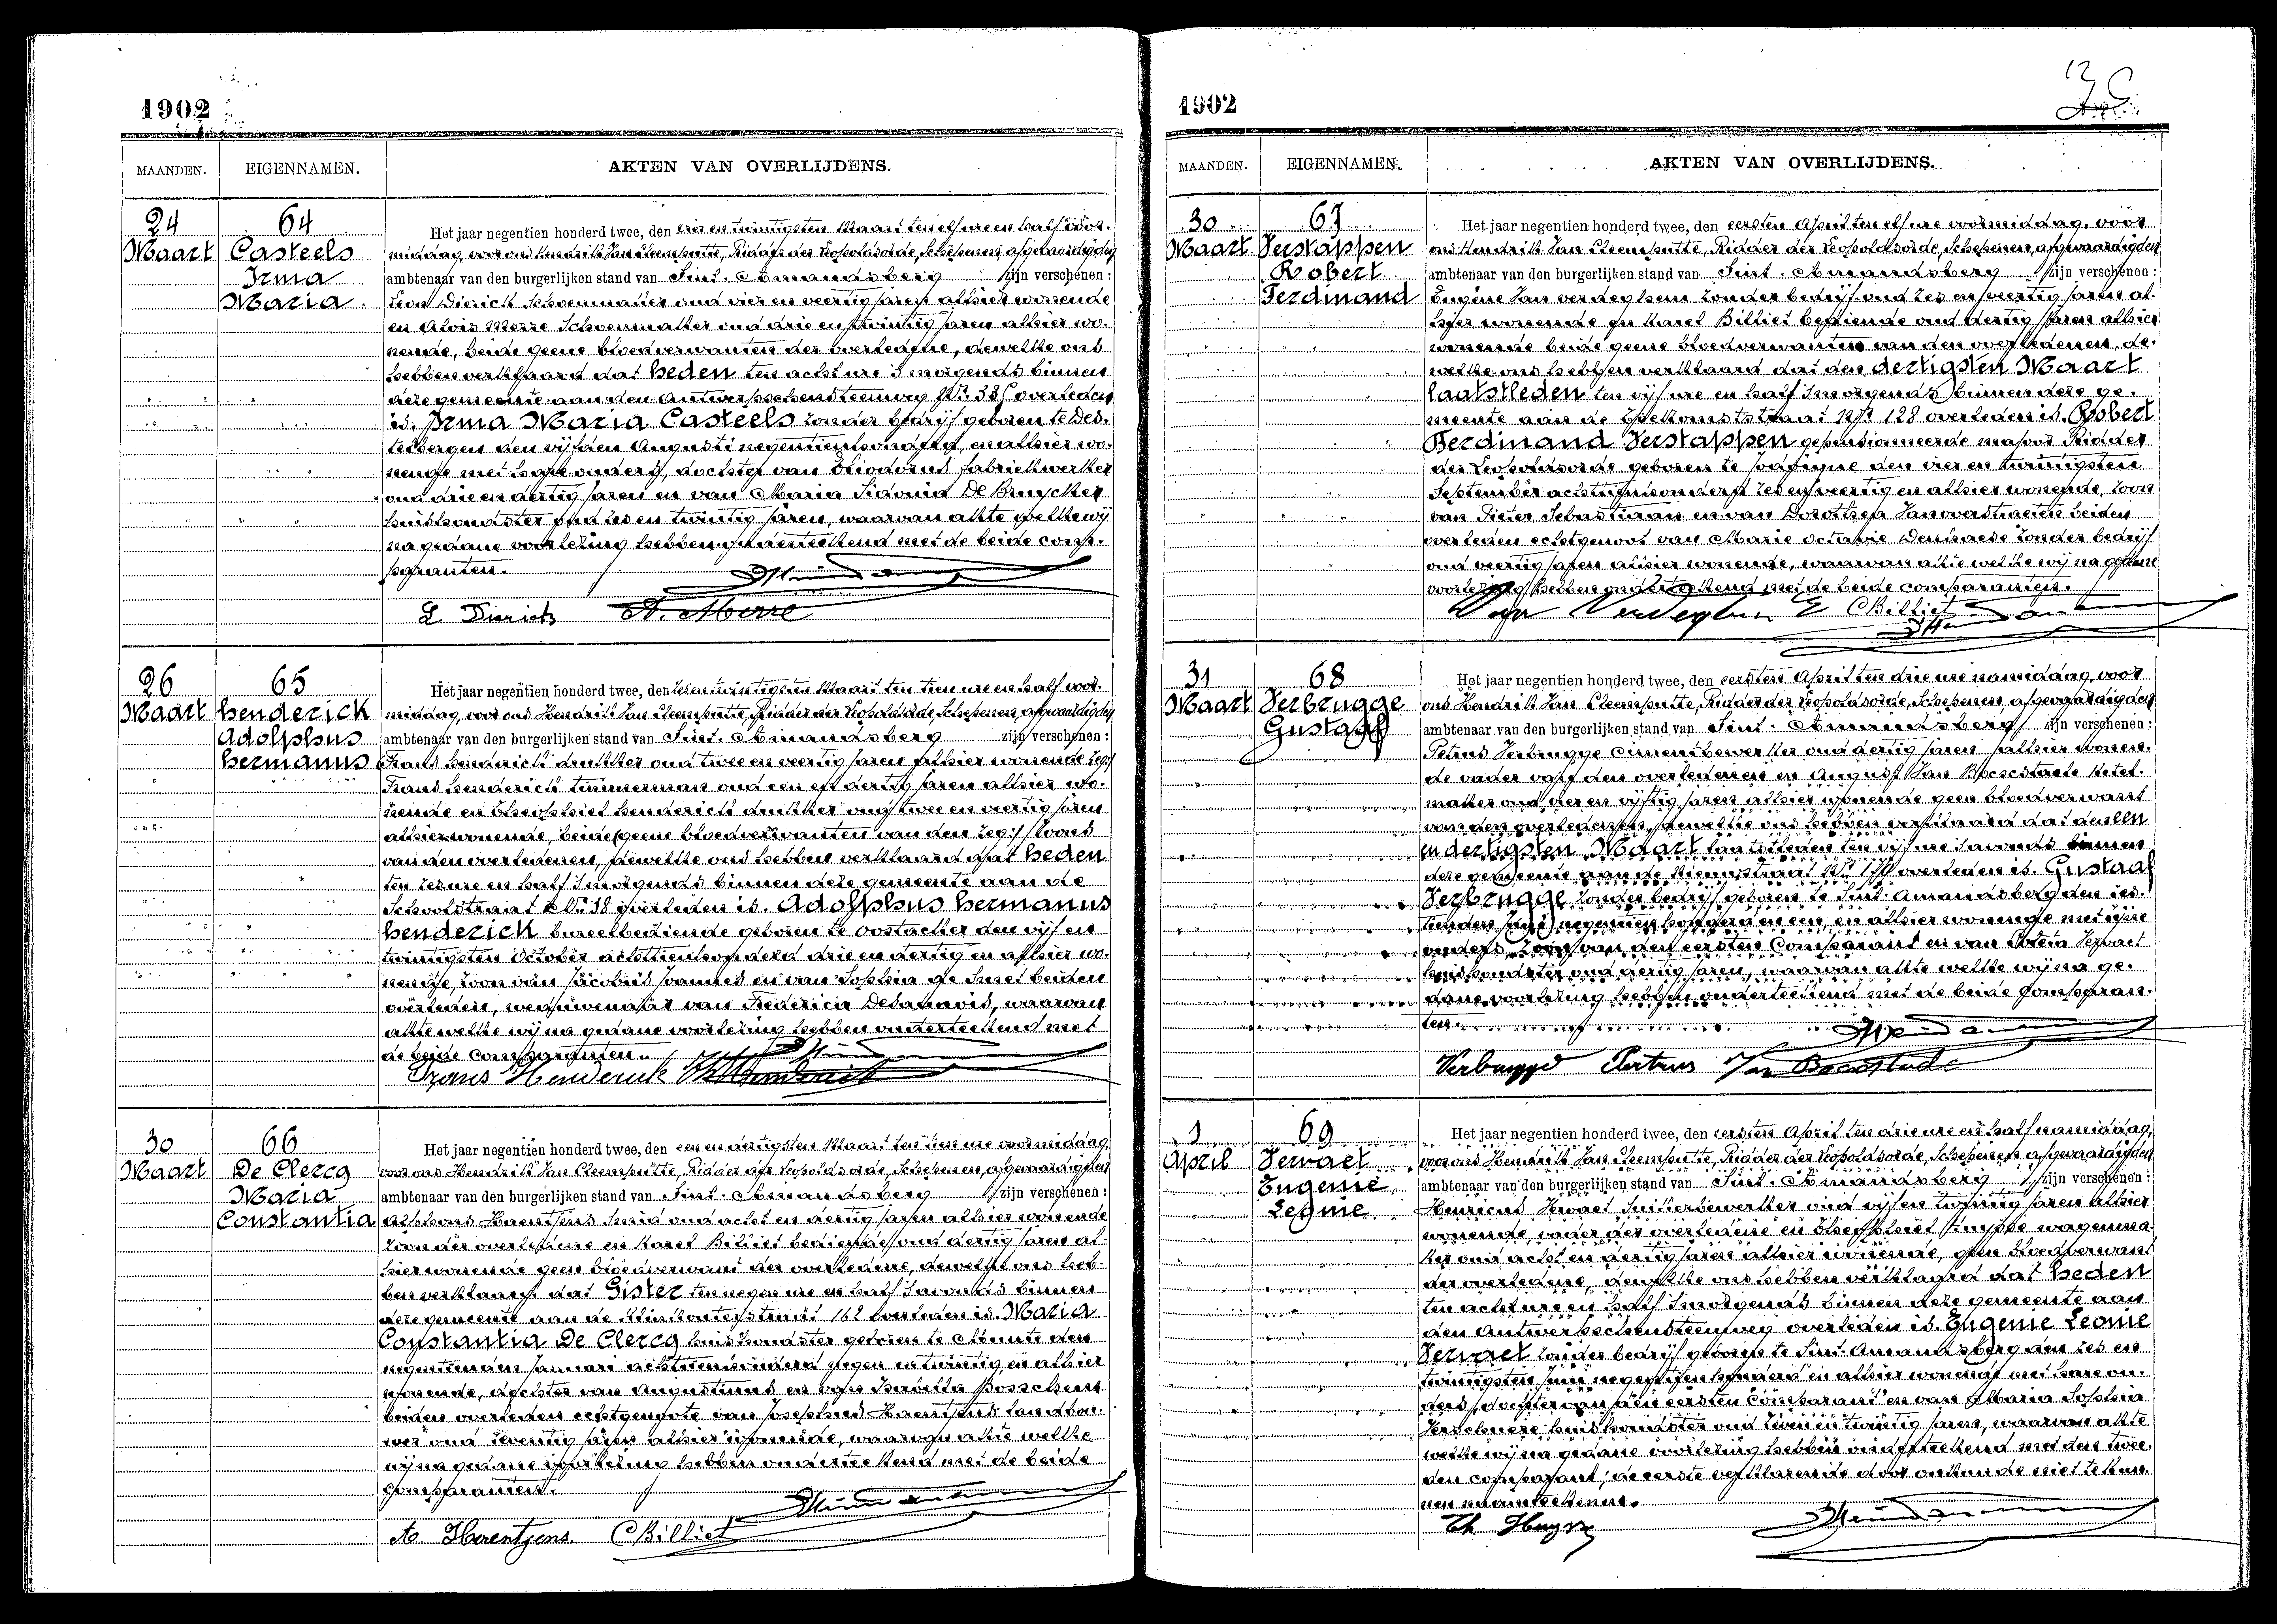 1902
MAANDEN. EIGENNAMEN. AKTEN VAN OVERLIJDENS.
24 64
Maart Casteels
Irma
Maria.
Het jaar negentien honderd twee, den vier en twintigsten Maart ten elf ure en half voor-
middag, voor ons Hendrik Van Cleemputte, Ridder der Leopoldsorde, Schepenen, afgevaardigden
ambtenaar van den burgerlijken stand van Sint-Amandsberg zijn verschenen :
Leon Dierick Schoenmaker oud vier en veertig jaren alhier wonende
en Alois Merre Schoenmaker oud drie en twintig jaren alhier wo-
nende, beide geene bloedverwanten der overledene, dewelke ons
hebben verklaard dat heden ten acht ure 's morgends binnen
deze gemeente aan den Antwerpschensteenweg Nr. overleden
is. Irma Maria Casteels zonder bedrijf geboren te Des-
telbergen den vijfden Augusti negentienhonderd, en alhier wo-
nende met hare ouders, dochter van Theodorus fabriekwerker
oud drie en dertig jaren en van Maria Sidonia De Bruycker
huishoudster oud zes en twintig jaren, waarvan akte welke wij
na gedane voorlezing hebben onderteekend met de beide compa-
paranten.
L Dierick A. Merre
26 65
Maart Henderick
Adolphus
Hermanus
Het jaar negentien honderd twee, den zes en twintigsten Maart ten tien ure en half voor-
middag, voor ons Hendrik Van Cleemputte, Ridder der Leopoldsorde, Schepenen, afgevaardigden
ambtenaar van den burgerlijken stand van Sint-Amandsberg zijn verschenen :
Frans Henderick drukker oud twee en veertig jaren alhier wonende
Frans Henderick timmerman oud een en dertig jaren alhier wo-
nende en Theophiel Henderick drukker oud twee en veertig jaren
alhier wonende, beide geene bloedverwanten van den
van den overledenen, dewelke ons hebben verklaard dat heden
ten zes ure en half 's morgends binnen deze gemeente aan de
Schoolstraat Nr. 18 overleden is. Adolphus Hermanus
Henderick bureelbediende geboren te Oostacker den vijf en
twintigsten October achttienhonderd drie en dertig en alhier wo-
nende, zoon van Jacobus Joannes en van Sophia de Smet beiden
overleden, weduwenaar van Frederica Delannois, waarvan
akte welke wij na gedane voorlezing hebben onderteekend met
de beide comparanten.
Frans Henderick Th Henderick
30 66
Maart De Clercq
Maria
Constantia
Het jaar negentien honderd twee, den een en dertigsten Maart ten tien ure voormiddag,
voor ons Hendrik Van Cleemputte, Ridder der Leopoldsorde, Schepenen, afgevaardigden
ambtenaar van den burgerlijken stand van Sint-Amandsberg zijn verschenen :
Alphons Haentjens Smid oud acht en dertig jaren alhier wonende
zoon der overledene en Karel Billiet bediende oud dertig jaren al-
hier wonende geen bloedverwant der overledene, dewelke ons heb-
ben verklaard dat Gister ten negen ure en half 's avonds binnen
deze gemeente aan de straat 162 overleden is. Maria
Constantia De Clercq huishoudster geboren te den
negentienden Januari achttienhonderd negen en twintig en alhier
wonende, dochter van Augustinus en van Bosschem
beiden overleden echtgenote van Josephus Haentjens landbou-
wer oud zeventig jaren alhier wonende, waarvan akte welke
wij na gedane voorlezing hebben onderteekend met de beide
comparanten.
A Haentjens. C Billiet
1902
12
MAANDEN. EIGENNAMEN. AKTEN VAN OVERLIJDENS.
30 67
Maart Verstappen
Robert
Ferdinand
Het jaar negentien honderd twee, den eersten April ten elf ure voormiddag, voor
ons Hendrik Van Cleemputte, Ridder der Leopoldsorde, Schepenen, afgevaardigden
ambtenaar van den burgerlijken stand van Sint-Amandsberg zijn verschenen :
Eugène Van Verdeghem zonder bedrijf oud zes en veertig jaren al-
hier wonende en Karel Billiet bediende oud dertig jaren alhier
wonende beide geene bloedverwanten van den overledenen, de-
welke ons hebben verklaard dat den dertigsten Maart
laatstleden ten vijf ure en half 's morgends binnen deze ge-
meente aan de Toekomststraat Nr. 128 overleden is. Robert
Ferdinand Verstappen gepensionneerde majoor Ridder
der Leopoldsorde geboren te den vier en twintigsten
September achttienhonderd zes en veertig en alhier wonende, zoon
van Pieter Sebastiaan en van Dorothea Vanoverstraeten beiden
overleden echtgenoot van Marie Octavie zonder bedrijf
oud veertig jaren alhier wonende, waarvan akte welke wij na gedane
voorlezing hebben onderteekend met de beide comparanten.
Van Verdeghem E C Billiet
31 68
Maart Verbrugge
Gustaaf
Het jaar negentien honderd twee, den eersten April ten drie ure namiddag, voor
ons Hendrik Van Cleemputte, Ridder der Leopoldsorde, Schepenen, afgevaardigden
ambtenaar van den burgerlijken stand van Sint-Amandsberg zijn verschenen :
Petrus Verbrugge Cimentbewerker oud dertig jaren alhier wonen-
de vader van den overledenen en August Van ketel-
maker oud vier en vijftig jaren alhier wonende geen bloedverwant
van den overledenen, dewelke ons hebben verklaard dat den een
en dertigsten Maart laatstleden ten vijf ure 's avonds binnen
deze gemeente aan de overleden is. Gustaaf
Verbrugge zonder bedrijf geboren te Sint-Amandsberg den
negentienhonderd en een, en alhier wonende met zijne
ouders, zoon van den eersten Comparant en van Servaet
huishoudster oud dertig jaren, waarvan akte welke wij na ge-
dane voorlezing hebben onderteekend met de beide Comparan-
ten.
Verbrugge Petrus Van
1 69
April Servaet
Eugenie
Leonie
Het jaar negentien honderd twee, den eersten April ten drie ure en half namiddag,
voor ons Hendrik Van Cleemputte, Ridder der Leopoldsorde, Schepenen, afgevaardigden
ambtenaar van den burgerlijken stand van Sint-Amandsberg zijn verschenen :
Henricus Servaet oud vijf en twintig jaren alhier
wonende, vader der overledene en Theophiel wagenma-
ker oud acht en dertig jaren alhier wonende, geen bloedverwant
der overledene, dewelke ons hebben verklaard dat heden
ten acht ure en half 's morgends binnen deze gemeente aan
den Antwerpschensteenweg overleden is. Eugenie Leonie
Servaet zonder bedrijf geboren te Sint-Amandsberg den zes en
twintigsten Juni negentienhonderd en alhier wonende met hare ou-
ders, dochter van den eersten Comparant en van Maria Sophia
huishoudster oud zeven en twintig jaren, waarvan akte
welke wij na gedane voorlezing hebben onderteekend met den twee-
den comparant, de eerste verklarende door onkunde niet te kun-
nen naamteekenen.
Th